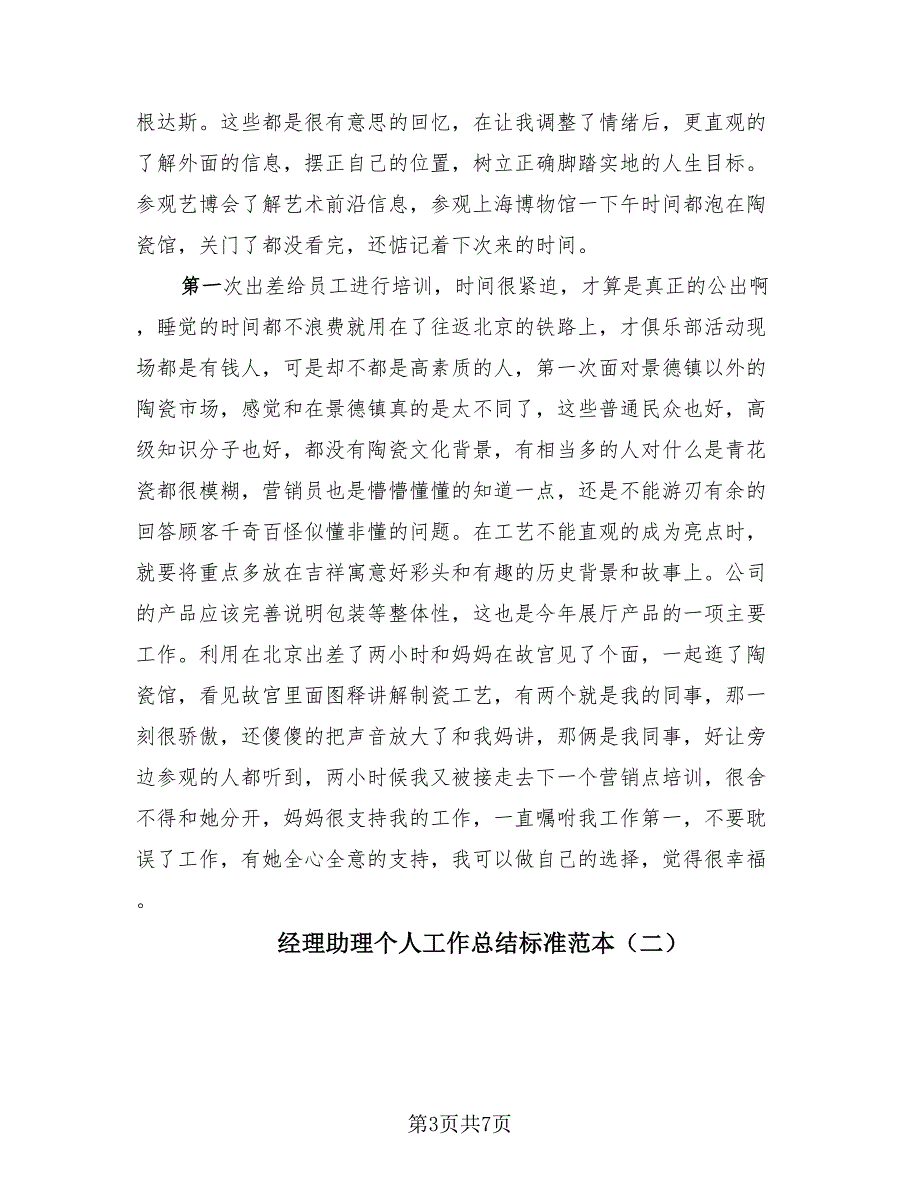 根达斯。这些都是很有意思的回忆，在让我调整了情绪后，更直观的
了解外面的信息，摆正自己的位置，树立正确脚踏实地的人生目标。
参观艺博会了解艺术前沿信息，参观上海博物馆一下午时间都泡在陶
瓷馆，关门了都没看完，还惦记着下次来的时间。
第一次出差给员工进行培训，时间很紧迫，才算是真正的公出啊
，睡觉的时间都不浪费就用在了往返北京的铁路上，才俱乐部活动现
场都是有钱人，可是却不都是高素质的人，第一次面对景德镇以外的
陶瓷市场，感觉和在景德镇真的是太不同了，这些普通民众也好，高
级知识分子也好，都没有陶瓷文化背景，有相当多的人对什么是青花
瓷都很模糊，营销员也是懵懵懂懂的知道一点，还是不能游刃有余的
回答顾客千奇百怪似懂非懂的问题。在工艺不能直观的成为亮点时，
就要将重点多放在吉祥寓意好彩头和有趣的历史背景和故事上。公司
的产品应该完善说明包装等整体性，这也是今年展厅产品的一项主要
工作。利用在北京出差了两小时和妈妈在故宫见了个面，一起逛了陶
瓷馆，看见故宫里面图释讲解制瓷工艺，有两个就是我的同事，那一
刻很骄傲，还傻傻的把声音放大了和我妈讲，那俩是我同事，好让旁
边参观的人都听到，两小时候我又被接走去下一个营销点培训，很舍
不得和她分开，妈妈很支持我的工作，一直嘱咐我工作第一，不要耽
误了工作，有她全心全意的支持，我可以做自己的选择，觉得很幸福
。
经理助理个人工作总结标准范本（二）
第3页共7页